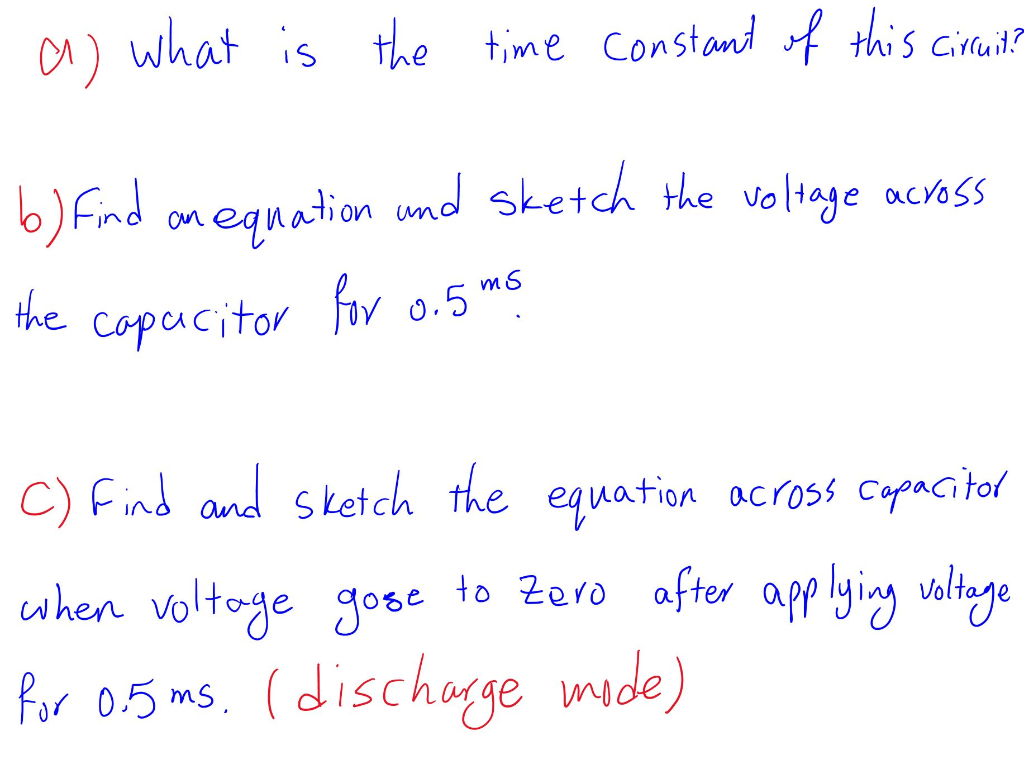 a) what is the time constant of this circuit?
b) Find an equation and sketch the voltage across
the capacitor for 0.5 ms.
C) Find and sketch the equation across capacitor
when voltage gose to zero after applying voltage
for 0.5 ms. (discharge mode)